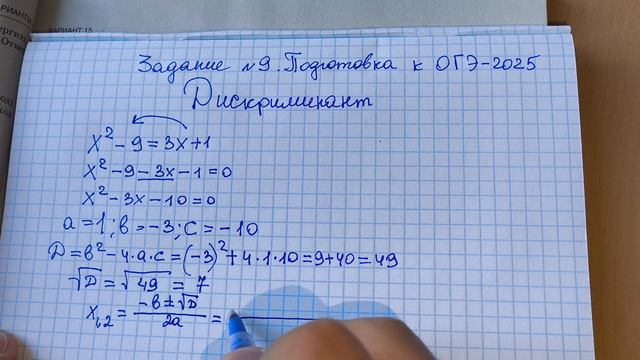 РИАНТЫ
ВАРИАНТ 15
Задание №9. Подготовка к ОГЭ-2025
Дискриминант
x² - 9 = 3x + 1
x² - 9 - 3x - 1 = 0
x² - 3x - 10 = 0
a = 1; в = -3; c = -10
D = в² - 4·a·c = (-3)² + 4·1·10 = 9 + 40 = 49
√D = √49 = 7
x₁,₂ = (-в ± √D) / 2a =